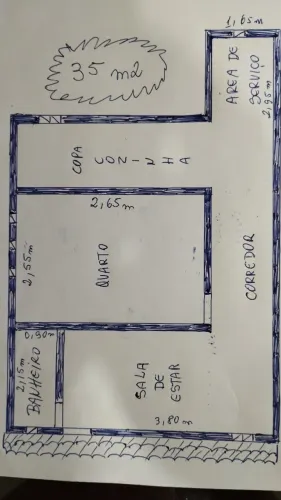 1,65m
35 m2
ÁREA DE
SERVIÇO
2,95m
COPA
COZINHA
2,65m
2,55m
QUARTO
CORREDOR
0,90m
2,15m
BANHEIRO
SALA
DE
ESTAR
3,80m